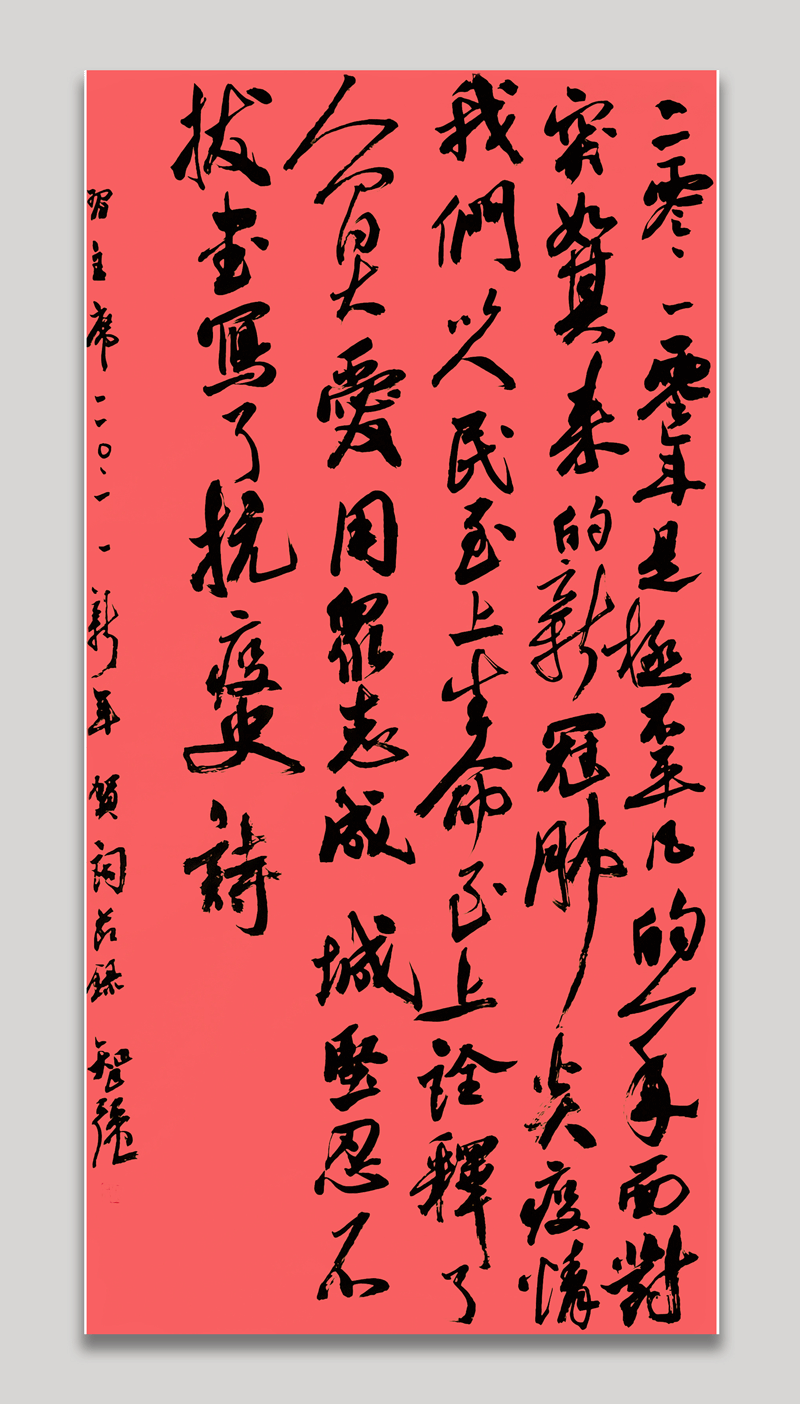 二零二零年是極不平凡的一年面對
突如其来的新冠肺炎疫情
我們以人民至上生命至上詮釋了
人間大愛用眾志成城堅忍不
拔書寫了抗疫史詩
習主席二〇二一新年賀詞节錄 智強